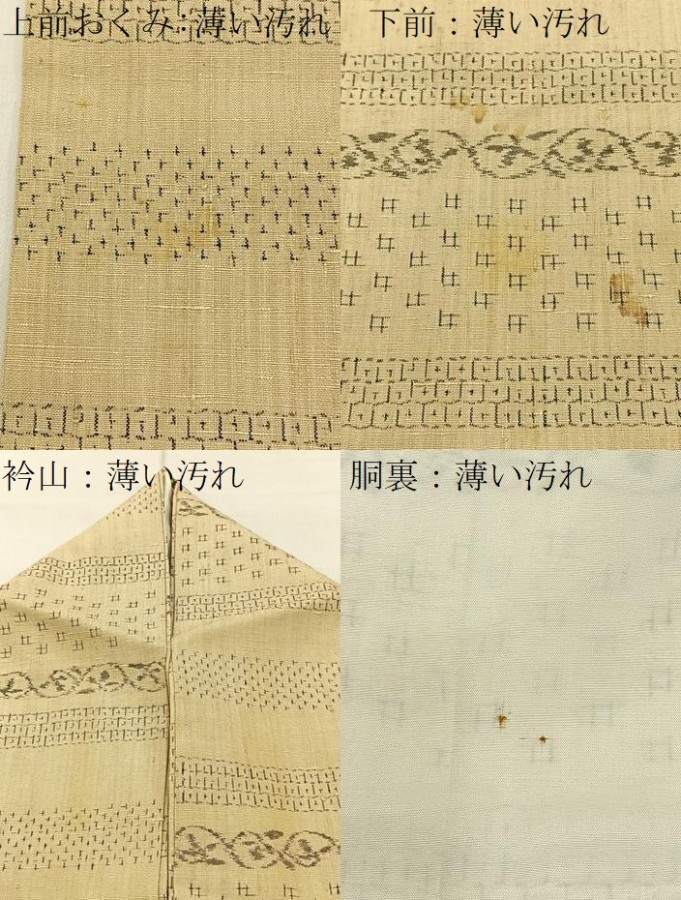 上前おくみ：薄い汚れ
下前：薄い汚れ
衿山：薄い汚れ
胴裏：薄い汚れ